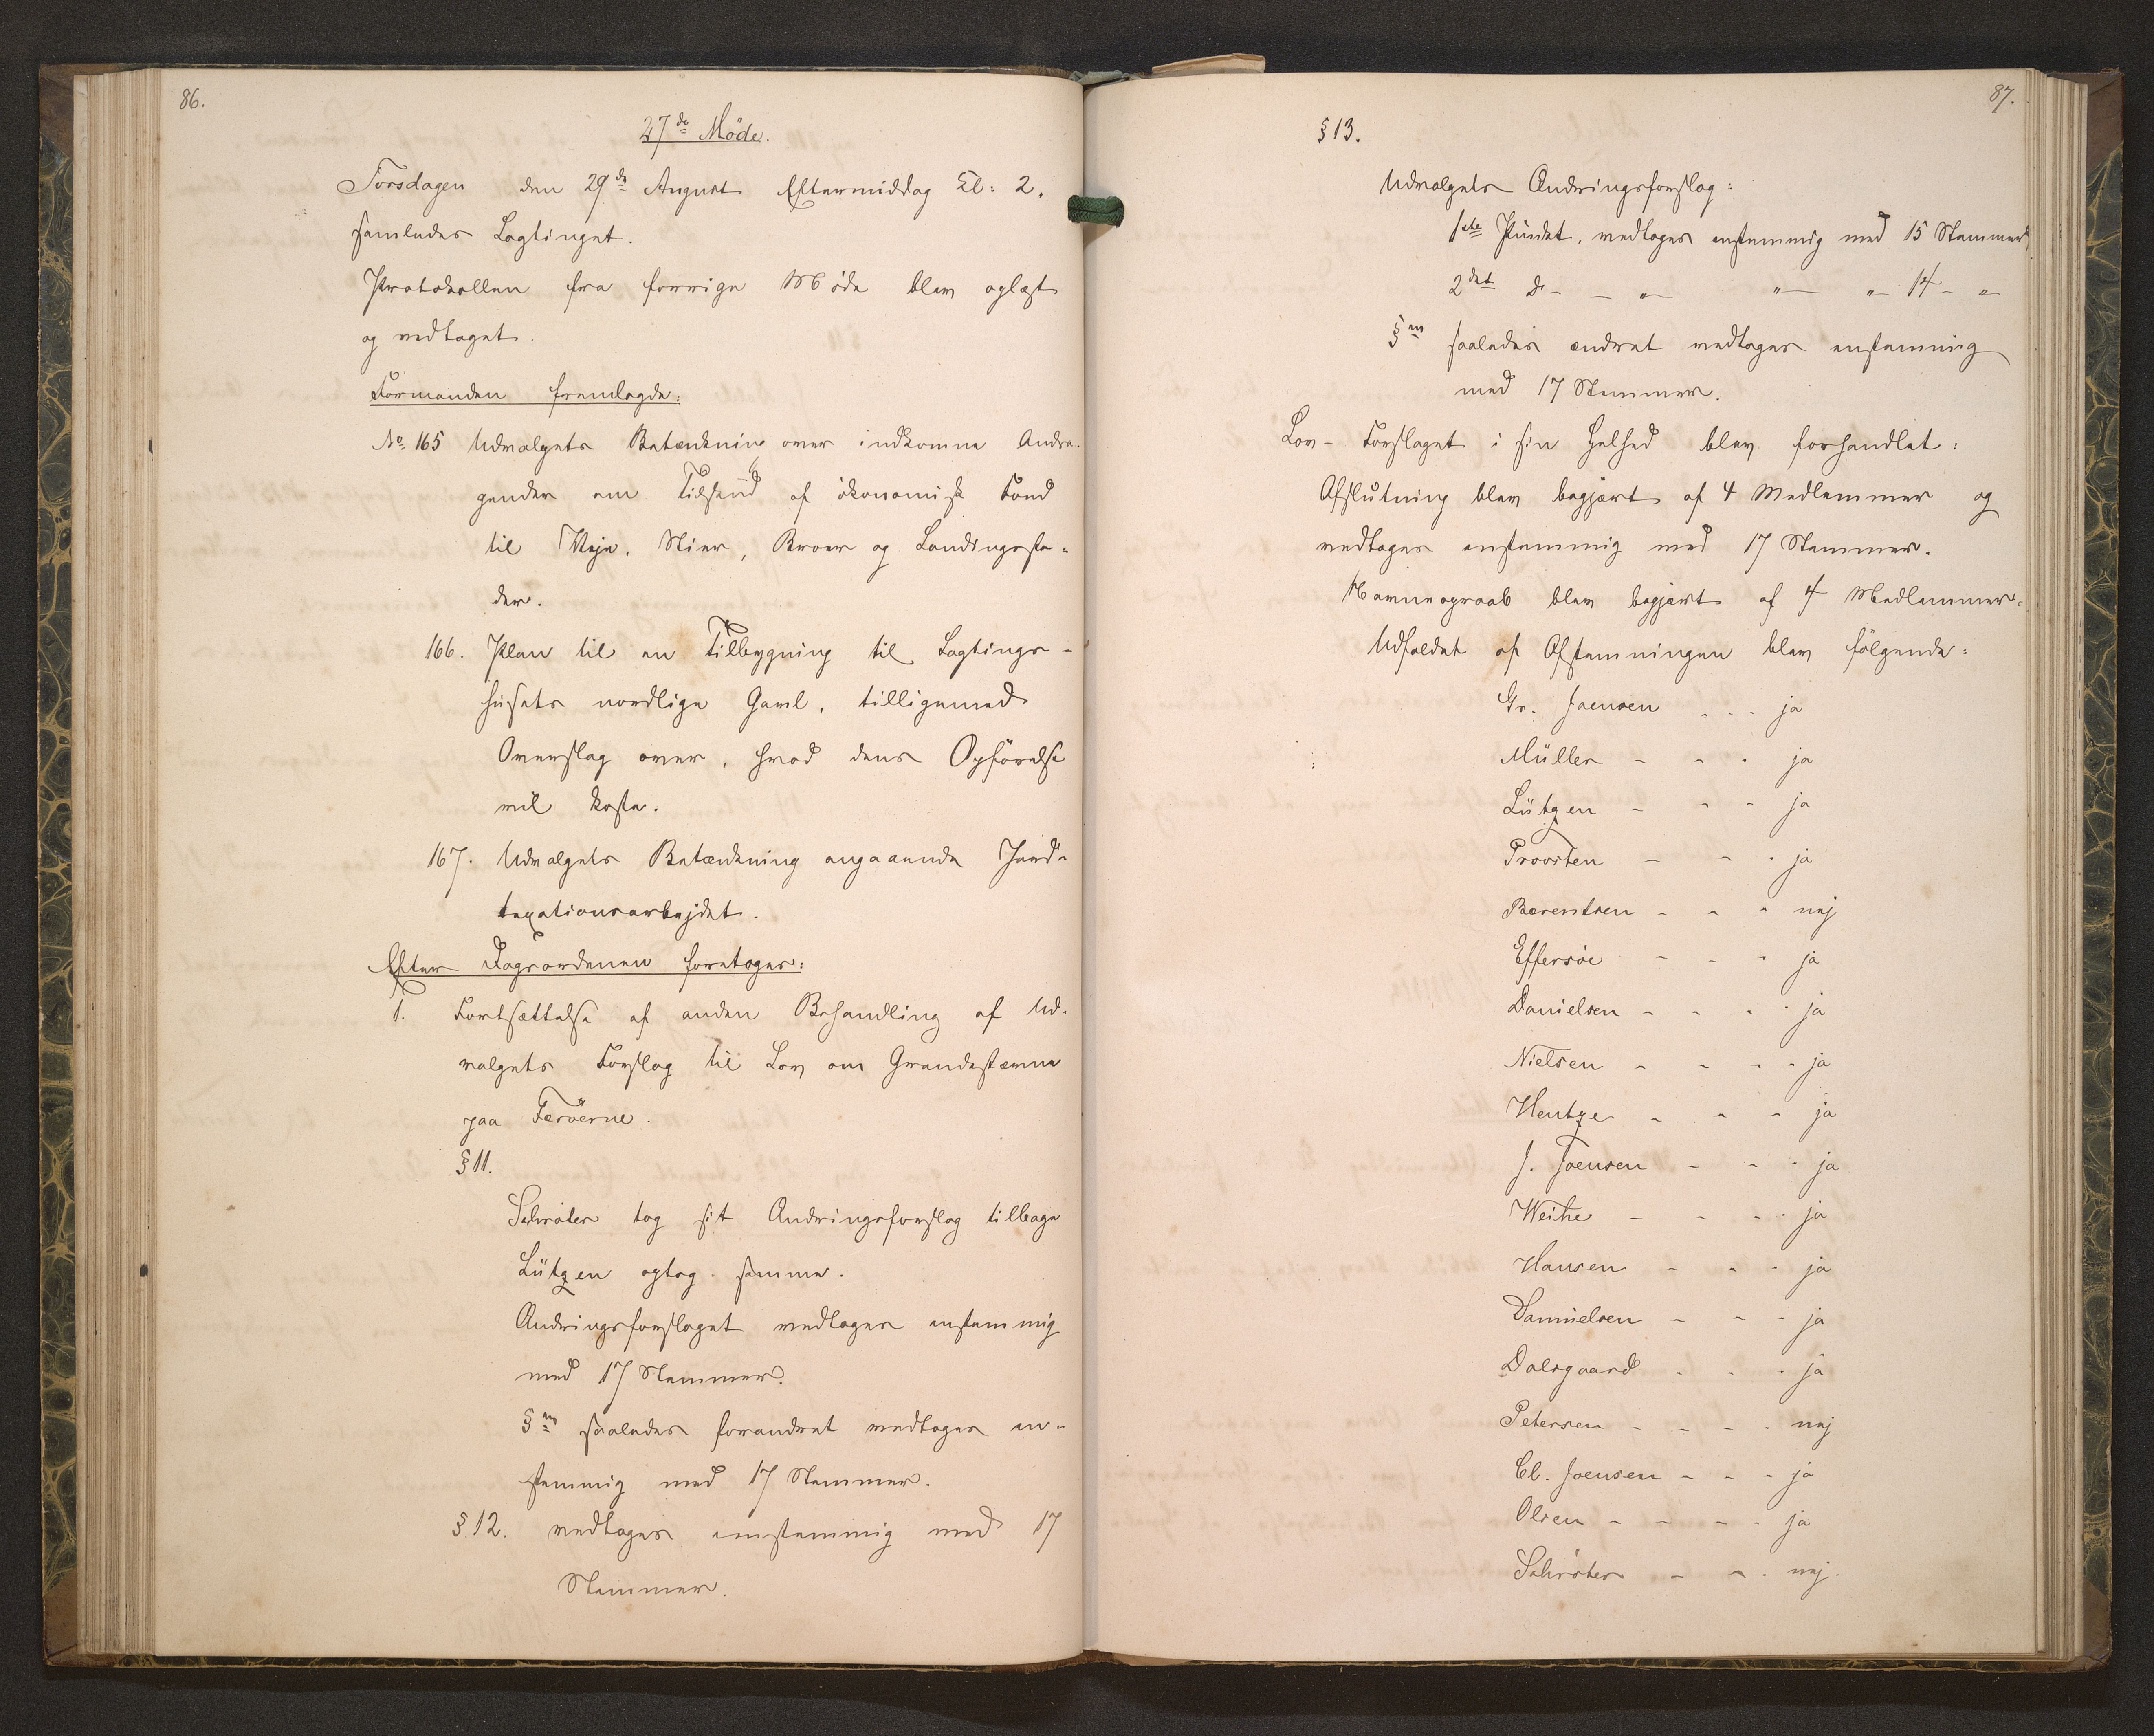 86.
27de Möde.
Torsdagen den 29de August Eftermiddag Kl: 2.
samledes Lagtinget.
Protokollen fra forrige Möde blev oplæst
og vedtaget.
Formanden fremlagde:
No. 165 Udvalgets Betænkning over indkomne Andra-
gender om Tilskud af ökonomisk Fond
til Veje, Stier, Broer og Landingsste-
der.
166. Plan til en Tilbygning til Lagtings-
husets nordlige Gavl, tilligemed
Overslag over, hvad dens Opförelse
vil koste.
167. Udvalgets Betænkning angaaende Jord-
taxationsarbejdet.
Efter Dagsordenen foretoges:
1. Fortsættelse af anden Behandling af Ud-
valgets Forslag til Lov om Grandestævne
paa Færöerne.
§ 11.
Schröter tog sit Ændringsforslag tilbage
Lützen optog samme.
Ændringsforslaget vedtoges enstemmig
med 17 Stemmer.
§en saaledes forandret vedtoges en-
stemmig med 17 Stemmer.
§ 12. vedtoges enstemmig med 17
Stemmer.
87.
§ 13.
Udvalgets Ændringsforslag:
1ste Punkt, vedtoges enstemmig med 15 Stemmer
2det do - - „ - „ - „ - 14 - „ -
§en saaledes ændret vedtoges enstemmig
med 17 Stemmer.
Lov-Forslaget i sin Helhed blev forhandlet:
Afslutning blev begjært af 4 Medlemmer og
vedtoges enstemmig med 17 Stemmer.
Navneopraab blev begjært af 4 Medlemmer.
Udfaldet af Afstemningen blev fölgende:
Gr. Joensen - - - ja
Müller - - - ja
Lützen - - - ja
Provsten - - - ja
Bærentsen - - - nej
Effersöe - - - ja
Danielsen - - - - ja
Nielsen - - - - ja
Hentze - - - ja
J. Joensen - - - ja
Weihe - - - - ja
Hansen - - - ja
Samuelsen - - - ja
Dalsgaard - - - ja
Petersen - - - - nej
Cl. Joensen - - - ja
Olsen - - - - ja
Schröter - - - nej.